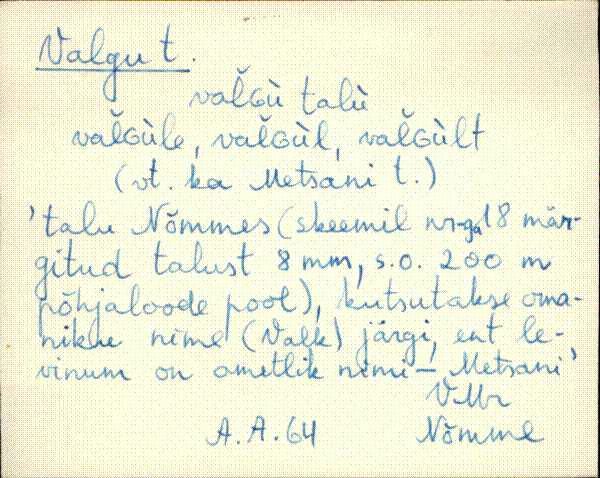 Valgu t.
vaľɢù talù
vaľɢùle, vaľɢùl, vaľɢùlt
(vt. ka Metsani t.)
'talu Nõmmes (skeemil nr-ga 18 mär-
gitud talust 8 mm, s.o. 200 m
põhjaloode pool), kutsutakse oma-
niku nime (Valk) järgi, ent le-
vinum on ametlik nimi — Metsani'
VMr
A.A.64 Nõmme